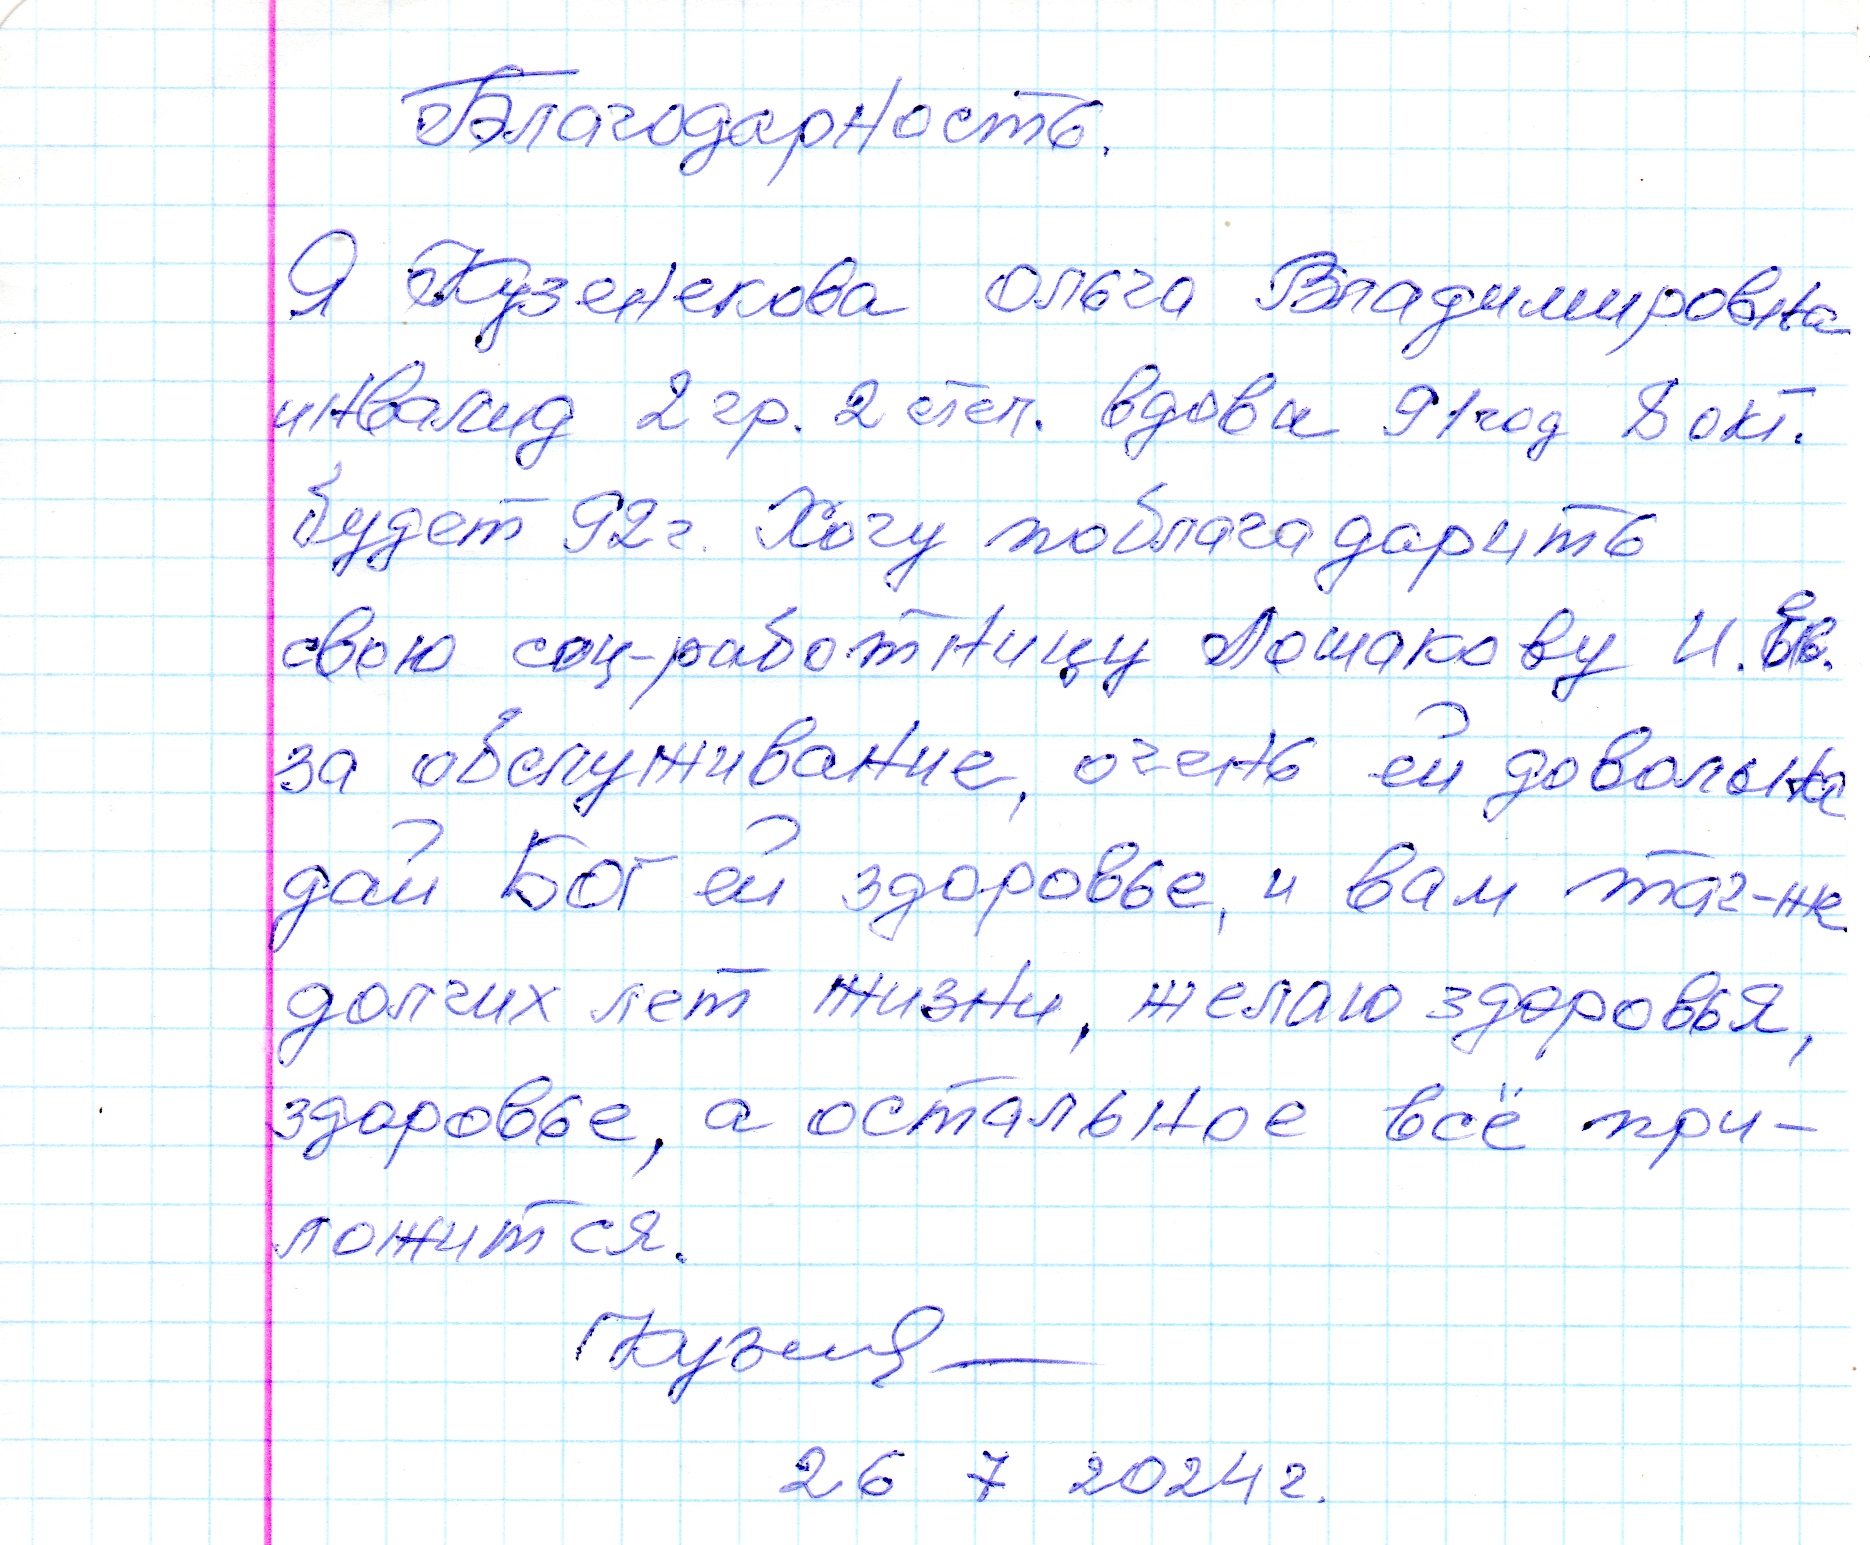 Благодарность.
Я Кузенекова Ольга Владимировна
инвалид 2 гр. 2 степ. вдова 91 год 8 окт.
будет 92 г. Хочу поблагадарить
свою соц-работницу Лошакову И. Ев.
за обслуживание, очень ей довольна
дай Бог ей здоровье, и вам таг-же
долгих лет жизни, желаю здоровья,
здоровье, а остальное всё при-
ложится.
26 7 2024 г.